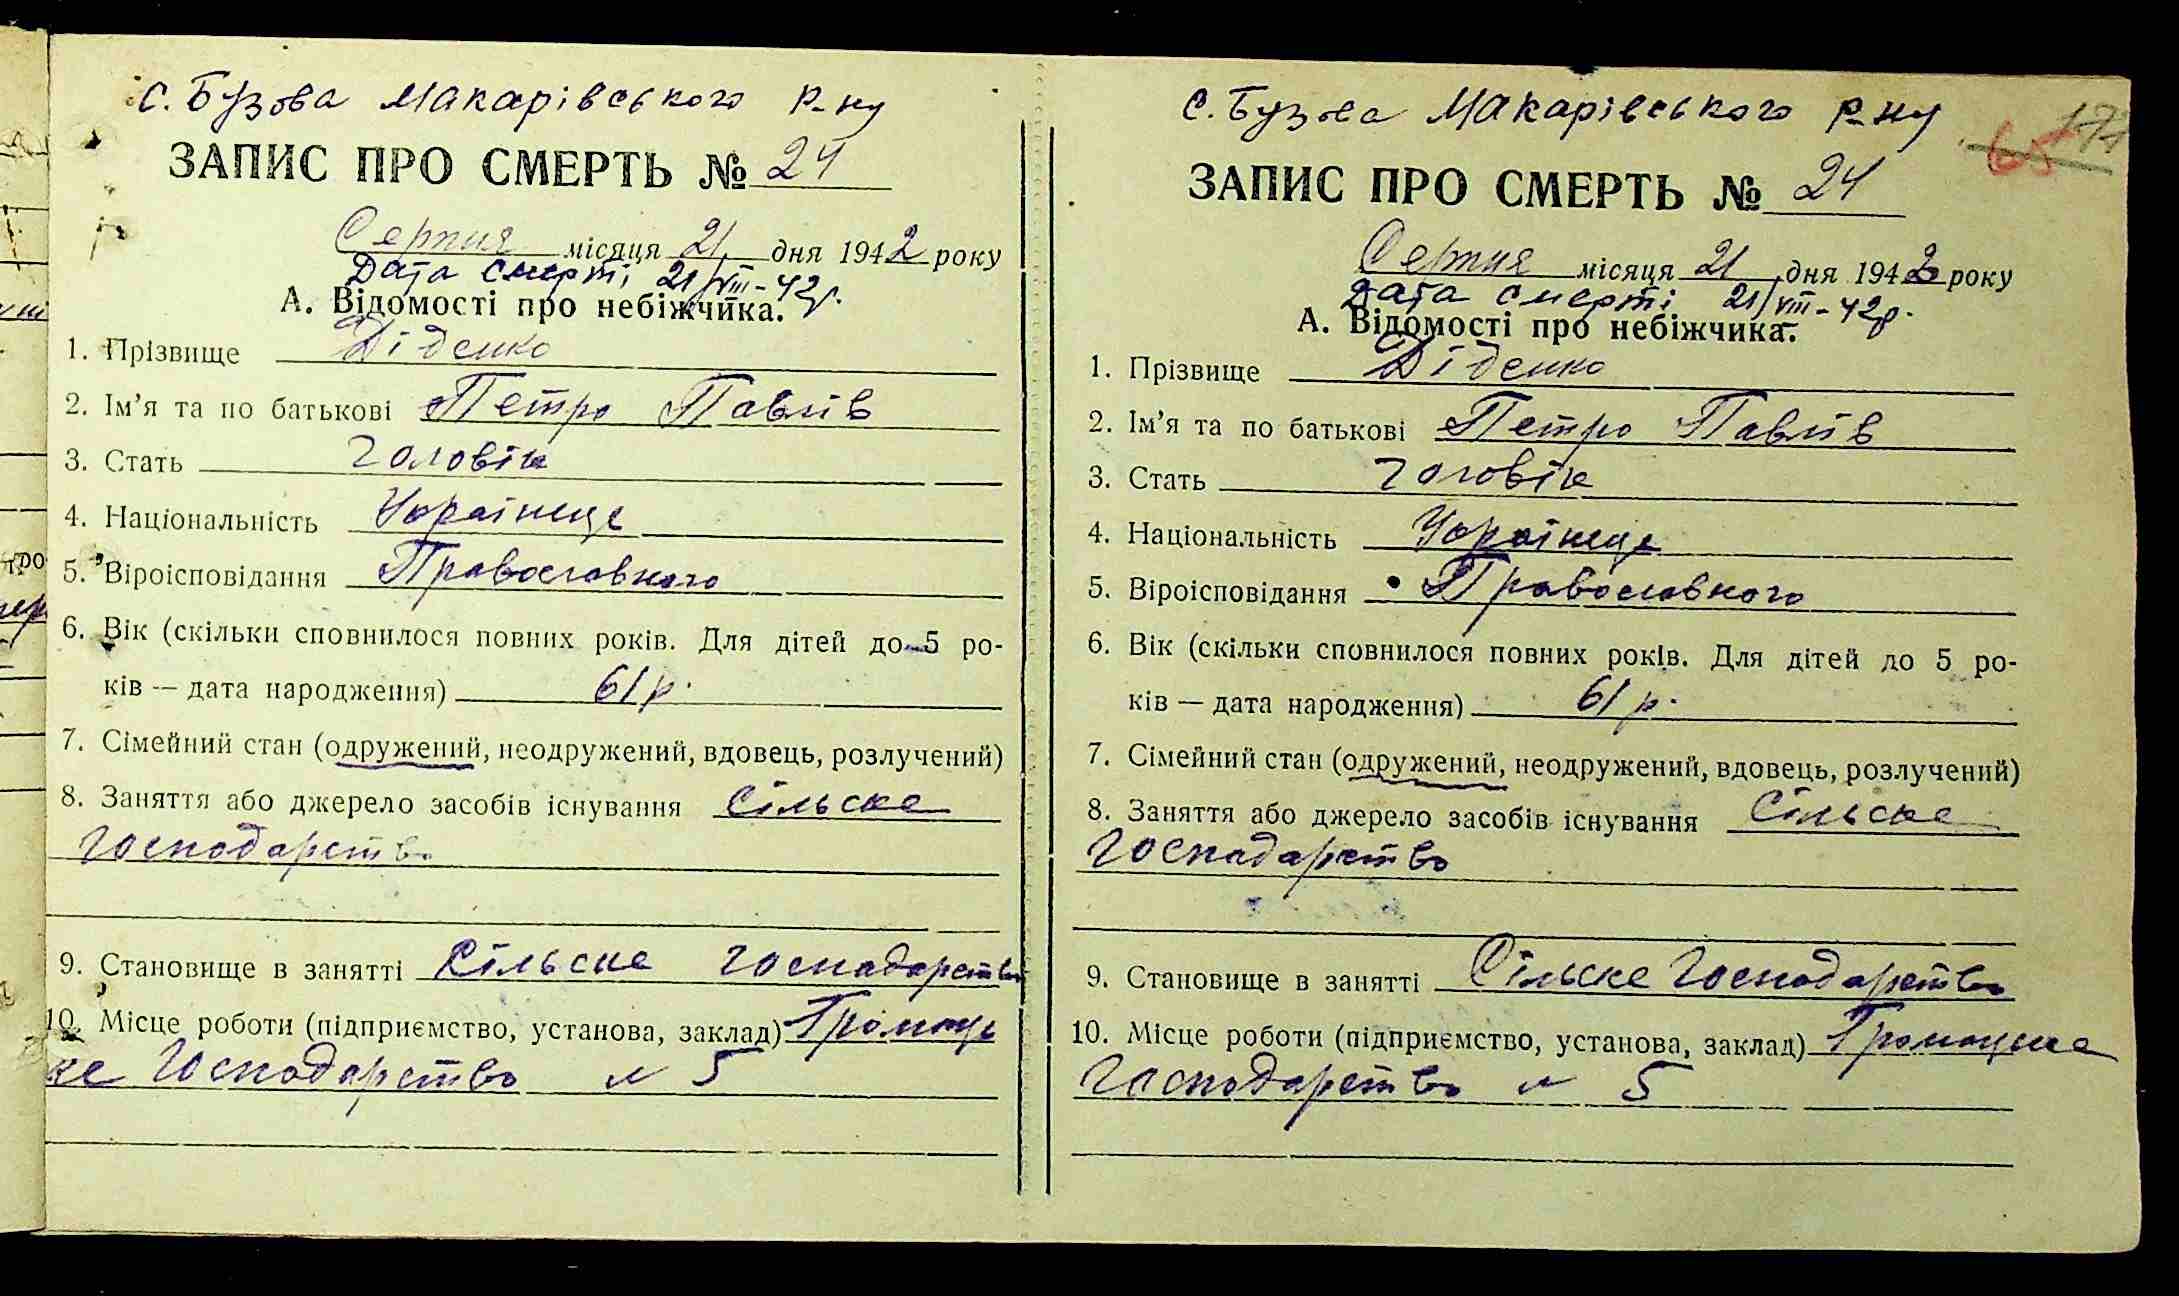 с. Бузова Макарівського р-ну
ЗАПИС ПРО СМЕРТЬ № 24
Серпня місяця 21 дня 1942 року
Дата смерті 21/VIII-42р.
А. Відомості про небіжчика.
1. Прізвище Діденко
2. Ім'я та по батькові Петро Павлів
3. Стать чоловік
4. Національність Українець
5. Віроісповідання Православного
6. Вік (скільки сповнилося повних років. Для дітей до 5 ро-
ків — дата народження) 61 р.
7. Сімейний стан (одружений, неодружений, вдовець, розлучений)
8. Заняття або джерело засобів існування Сільске
господарство
9. Становище в занятті Сільске господарство
10. Місце роботи (підприємство, установа, заклад) Громадс
ке господарство № 5
с. Бузова Макарівського р-ну
65 171
ЗАПИС ПРО СМЕРТЬ № 24
Серпня місяця 21 дня 1942 року
Дата смерті 21/VIII-42р.
А. Відомості про небіжчика.
1. Прізвище Діденко
2. Ім'я та по батькові Петро Павлів
3. Стать чоловік
4. Національність Українець
5. Віроісповідання Православного
6. Вік (скільки сповнилося повних років. Для дітей до 5 ро-
ків — дата народження) 61 р.
7. Сімейний стан (одружений, неодружений, вдовець, розлучений)
8. Заняття або джерело засобів існування Сільске
господарство
9. Становище в занятті Сільске господарство
10. Місце роботи (підприємство, установа, заклад)
господарство № 5